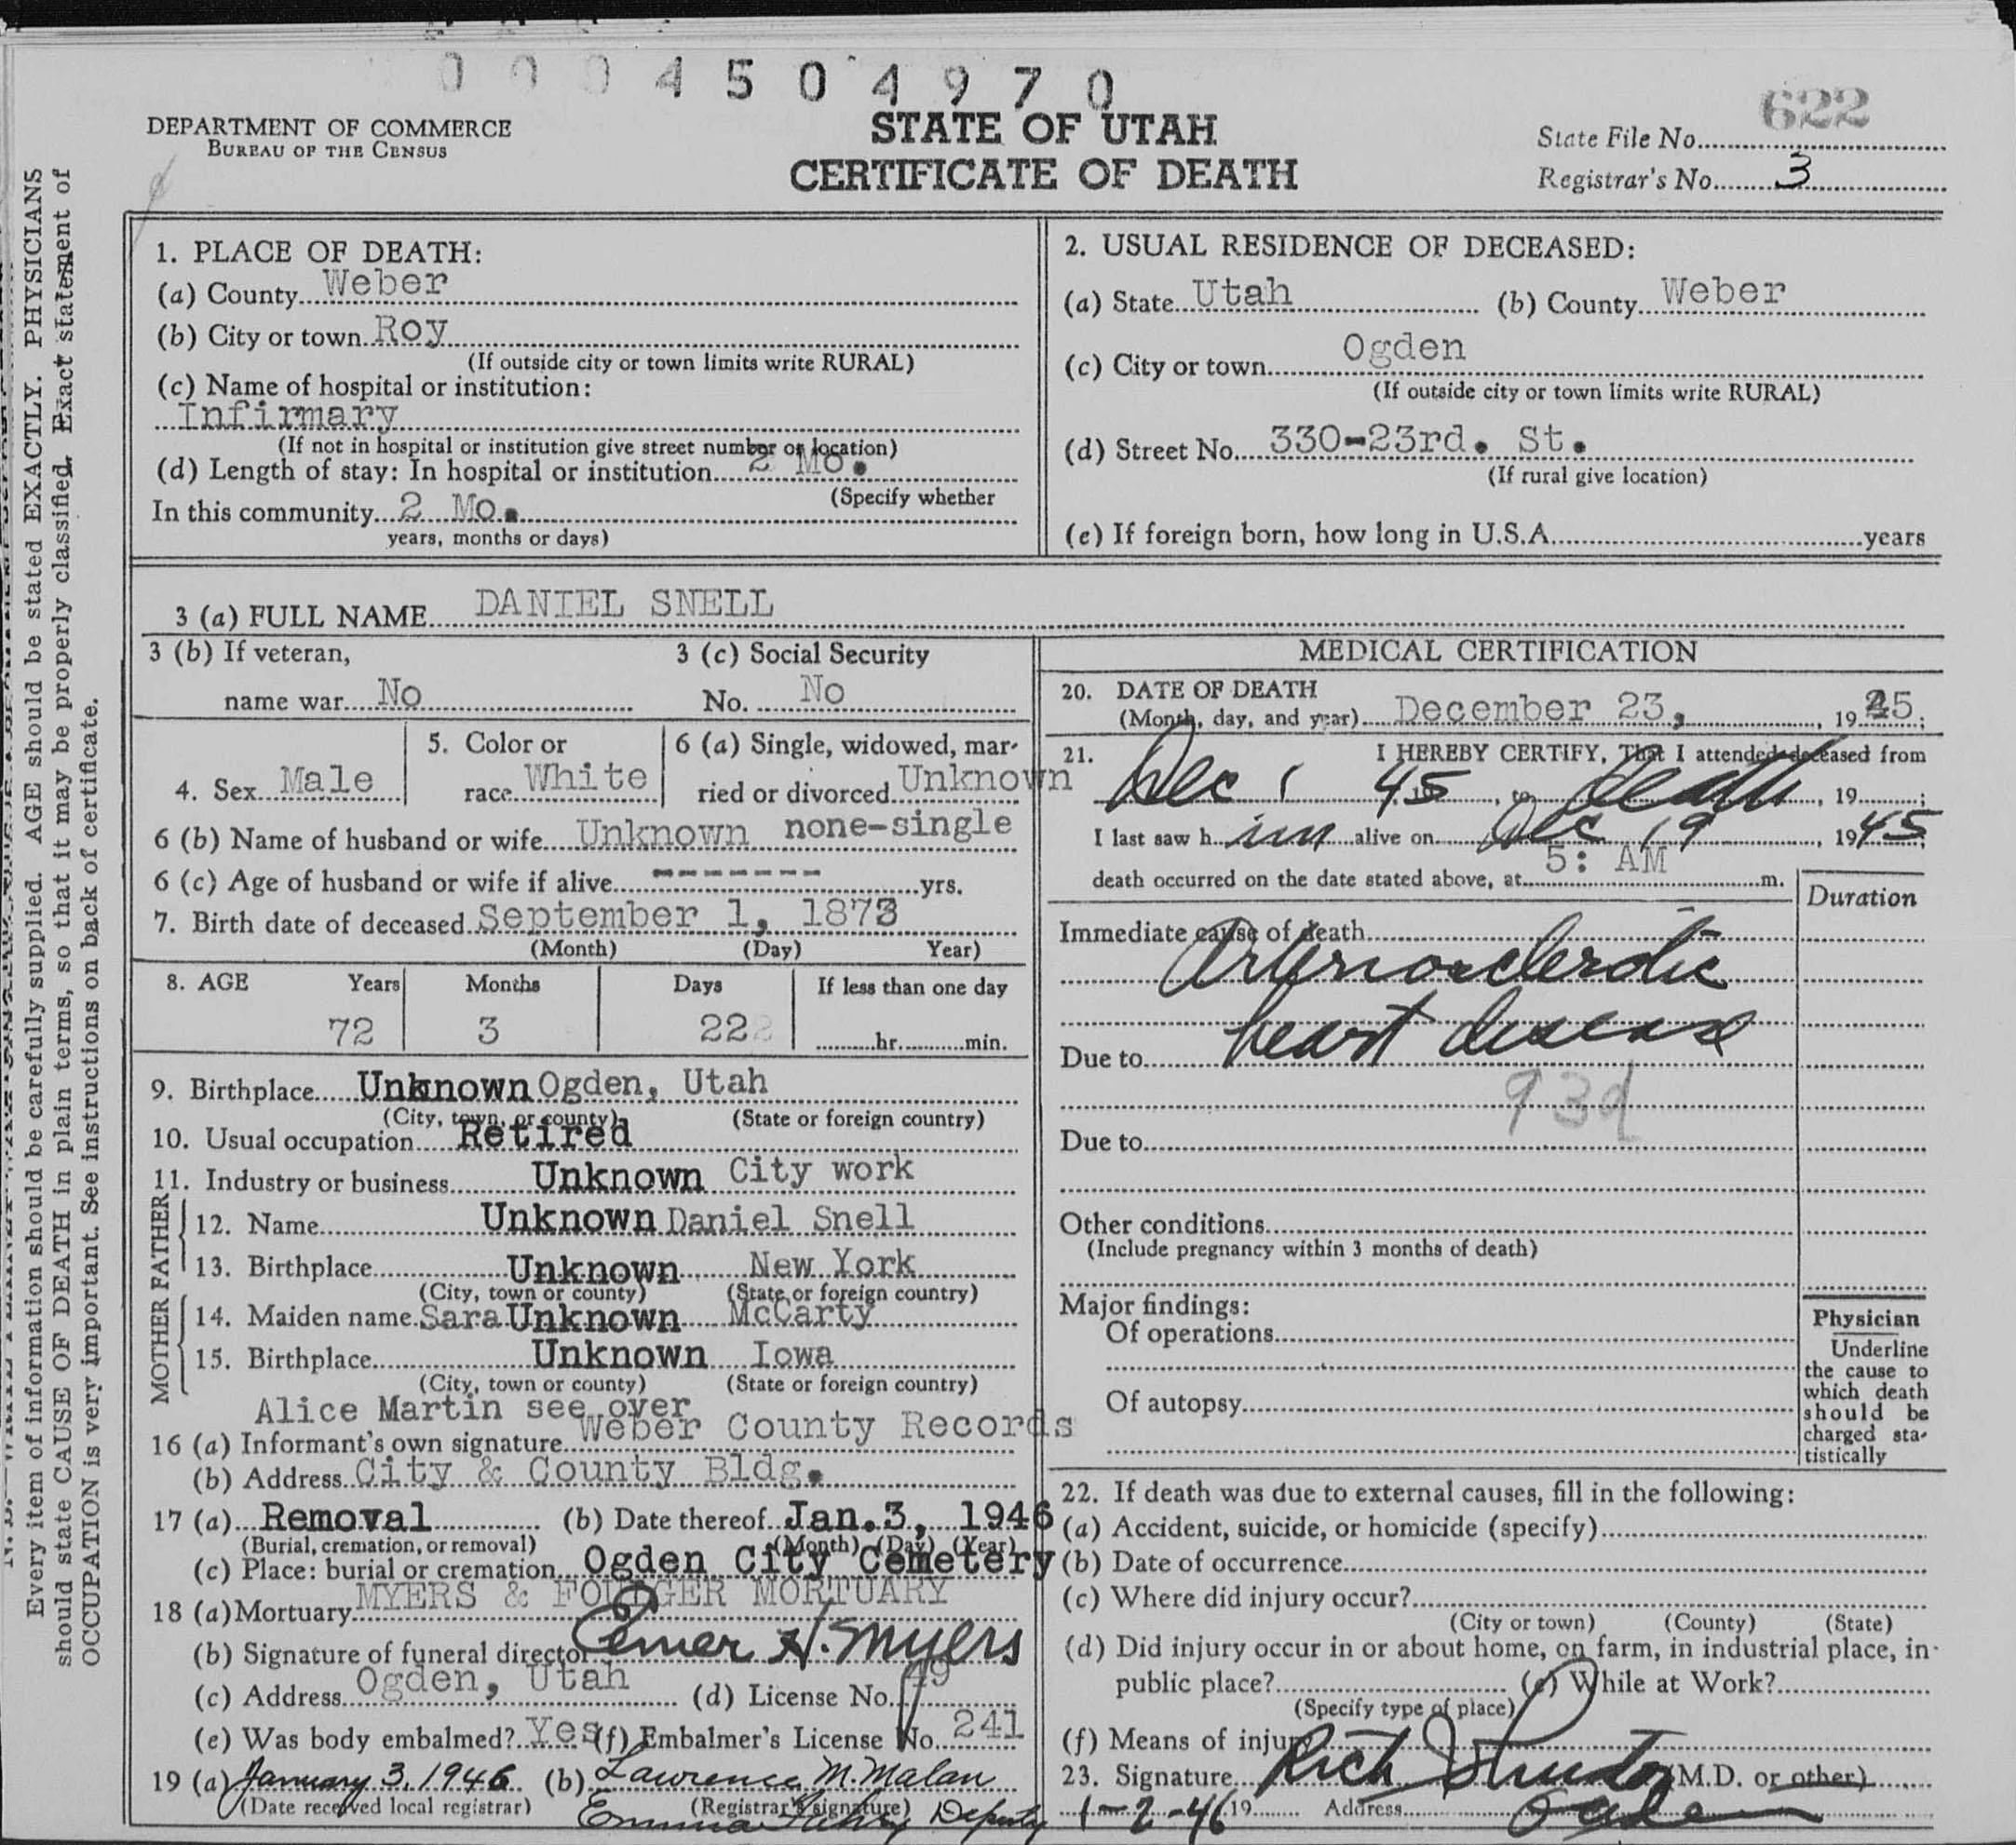 0 0 0 4 5 0 4 9 7 0
622
DEPARTMENT OF COMMERCE
BUREAU OF THE CENSUS
STATE OF UTAH
CERTIFICATE OF DEATH
State File No.
Registrar's No. 3
Every item of information should be carefully supplied. AGE should be stated EXACTLY. PHYSICIANS
should state CAUSE OF DEATH in plain terms, so that it may be properly classified. Exact statement of
OCCUPATION is very important. See instructions on back of certificate.
1. PLACE OF DEATH:
(a) County Weber
(b) City or town Roy
(If outside city or town limits write RURAL)
(c) Name of hospital or institution:
Infirmary
(If not in hospital or institution give street number or location)
(d) Length of stay: In hospital or institution 2 Mo.
(Specify whether
In this community 2 Mo.
years, months or days)
2. USUAL RESIDENCE OF DECEASED:
(a) State Utah (b) County Weber
(c) City or town Ogden
(If outside city or town limits write RURAL)
(d) Street No. 330-23rd. St.
(If rural give location)
(e) If foreign born, how long in U.S.A. years
3 (a) FULL NAME DANIEL SNELL
3 (b) If veteran,
name war No
3 (c) Social Security
No. No
4. Sex Male
5. Color or
race White
6 (a) Single, widowed, mar-
ried or divorced Unknown
6 (b) Name of husband or wife Unknown none-single
6 (c) Age of husband or wife if alive ------- yrs.
7. Birth date of deceased September 1, 1873
(Month) (Day) Year)
8. AGE Years Months Days If less than one day
72 3 22 hr. min.
9. Birthplace Unknown Ogden, Utah
(City, town, or county) (State or foreign country)
10. Usual occupation Retired
11. Industry or business Unknown City work
FATHER
12. Name Unknown Daniel Snell
13. Birthplace Unknown New York
(City, town or county) (State or foreign country)
MOTHER
14. Maiden name Sara Unknown McCarty
15. Birthplace Unknown Iowa
(City, town or county) (State or foreign country)
Alice Martin see over
16 (a) Informant's own signature Weber County Records
(b) Address City & County Bldg.
17 (a) Removal (b) Date thereof Jan. 3, 1946
(Burial, cremation, or removal) (Month) (Day) (Year)
(c) Place: burial or cremation Ogden City Cemetery
18 (a) Mortuary MYERS & FOULGER MORTUARY
(b) Signature of funeral director Elmer H. Myers
(c) Address Ogden, Utah (d) License No. 49
(e) Was body embalmed? Yes (f) Embalmer's License No. 241
19 (a) January 3, 1946 (b) Lawrence M. Malan
(Date received local registrar) (Registrar's signature)
Emma Deputy
MEDICAL CERTIFICATION
20. DATE OF DEATH
(Month, day, and year) December 23, 1945;
21. I HEREBY CERTIFY, That I attended deceased from
Dec 1 45, to death, 19 ;
I last saw h im alive on Dec 19, 1945;
death occurred on the date stated above, at 5: AM m.
Duration
Immediate cause of death
Arteriosclerotic
heart disease
Due to
93d
Due to
Other conditions
(Include pregnancy within 3 months of death)
Major findings:
Of operations
Of autopsy
Physician
Underline
the cause to
which death
should be
charged sta-
tistically
22. If death was due to external causes, fill in the following:
(a) Accident, suicide, or homicide (specify)
(b) Date of occurrence
(c) Where did injury occur?
(City or town) (County) (State)
(d) Did injury occur in or about home, on farm, in industrial place, in
public place? (e) While at Work?
(Specify type of place)
(f) Means of injury
23. Signature Rich (M.D. or other)
1-2-46 19 Address Ogden